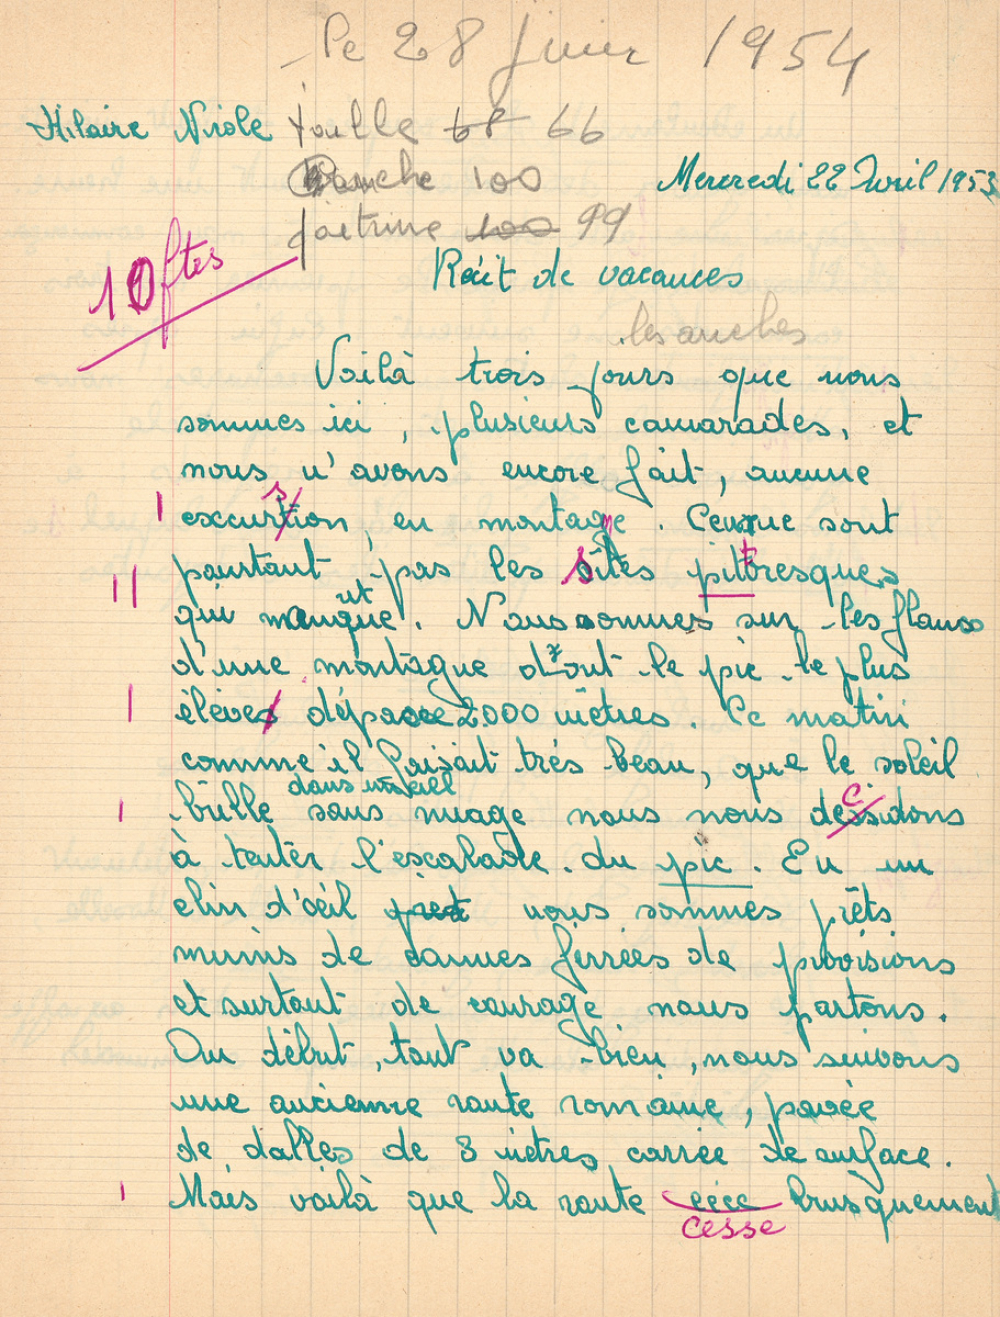 Le 28 Juin 1954
Hilaire Nicole taille 68 66
Hanche 100
Mercredi 22 Avril 1953
poitrine 100 99
10 ftes
Récit de vacances
les anches
Voilà trois jours que nous
sommes ici, plusieurs camarades, et
nous n'avons encore fait, aucune
s
excurtion, en montage. Ceux que sont
pourtant pas les sîtes pittoresques
qui manque. Nous sommes sur les flancs
d'une montagne dont le pic le plus
élèves dépasse 2000 mètres. Ce matin
comme il faisait très beau, que le soleil
dans un ciel
brille sans nuage nous nous dessidons
c
à tenter l'escalade du pic. En un
clin d'œil prêt nous sommes prêts
munis de cannes ferrées de provisions
et surtout de courage nous partons.
Au début, tout va bien, nous suivons
une ancienne route romaine, pavée
de dalles de 3 mètres carrée de surface.
Mais voilà que la route cèce brusquement
cesse